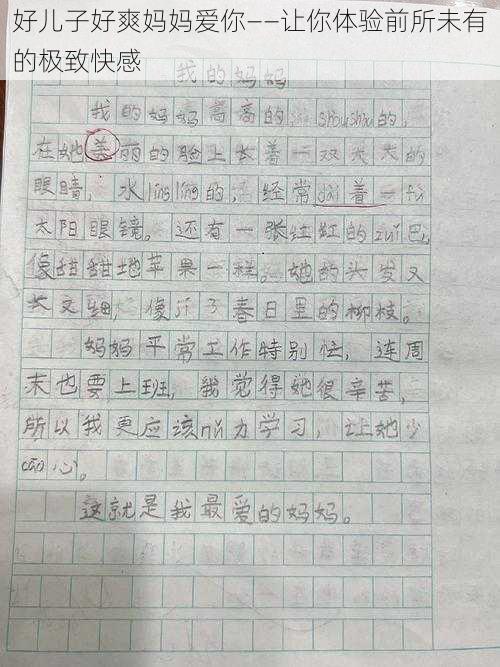 好儿子好爽妈妈爱你——让你体验前所未有
的极致快感
我的妈妈
我的妈妈高高的 shòushòu的,
在她美丽的脸上长着一双大大的
眼睛, 水líng líng的, 经常dài着一fù
太阳眼镜。还有一张红红的zuǐ巴,
像甜甜地苹果一样。她的头发又
长又细, 像jí了春日里的柳枝。
妈妈平常工作特别忙, 连周
末也要上班, 我觉得她很辛苦,
所以我更应该nǔ力学习, 让她少
cāo心。
这就是我最爱的妈妈。